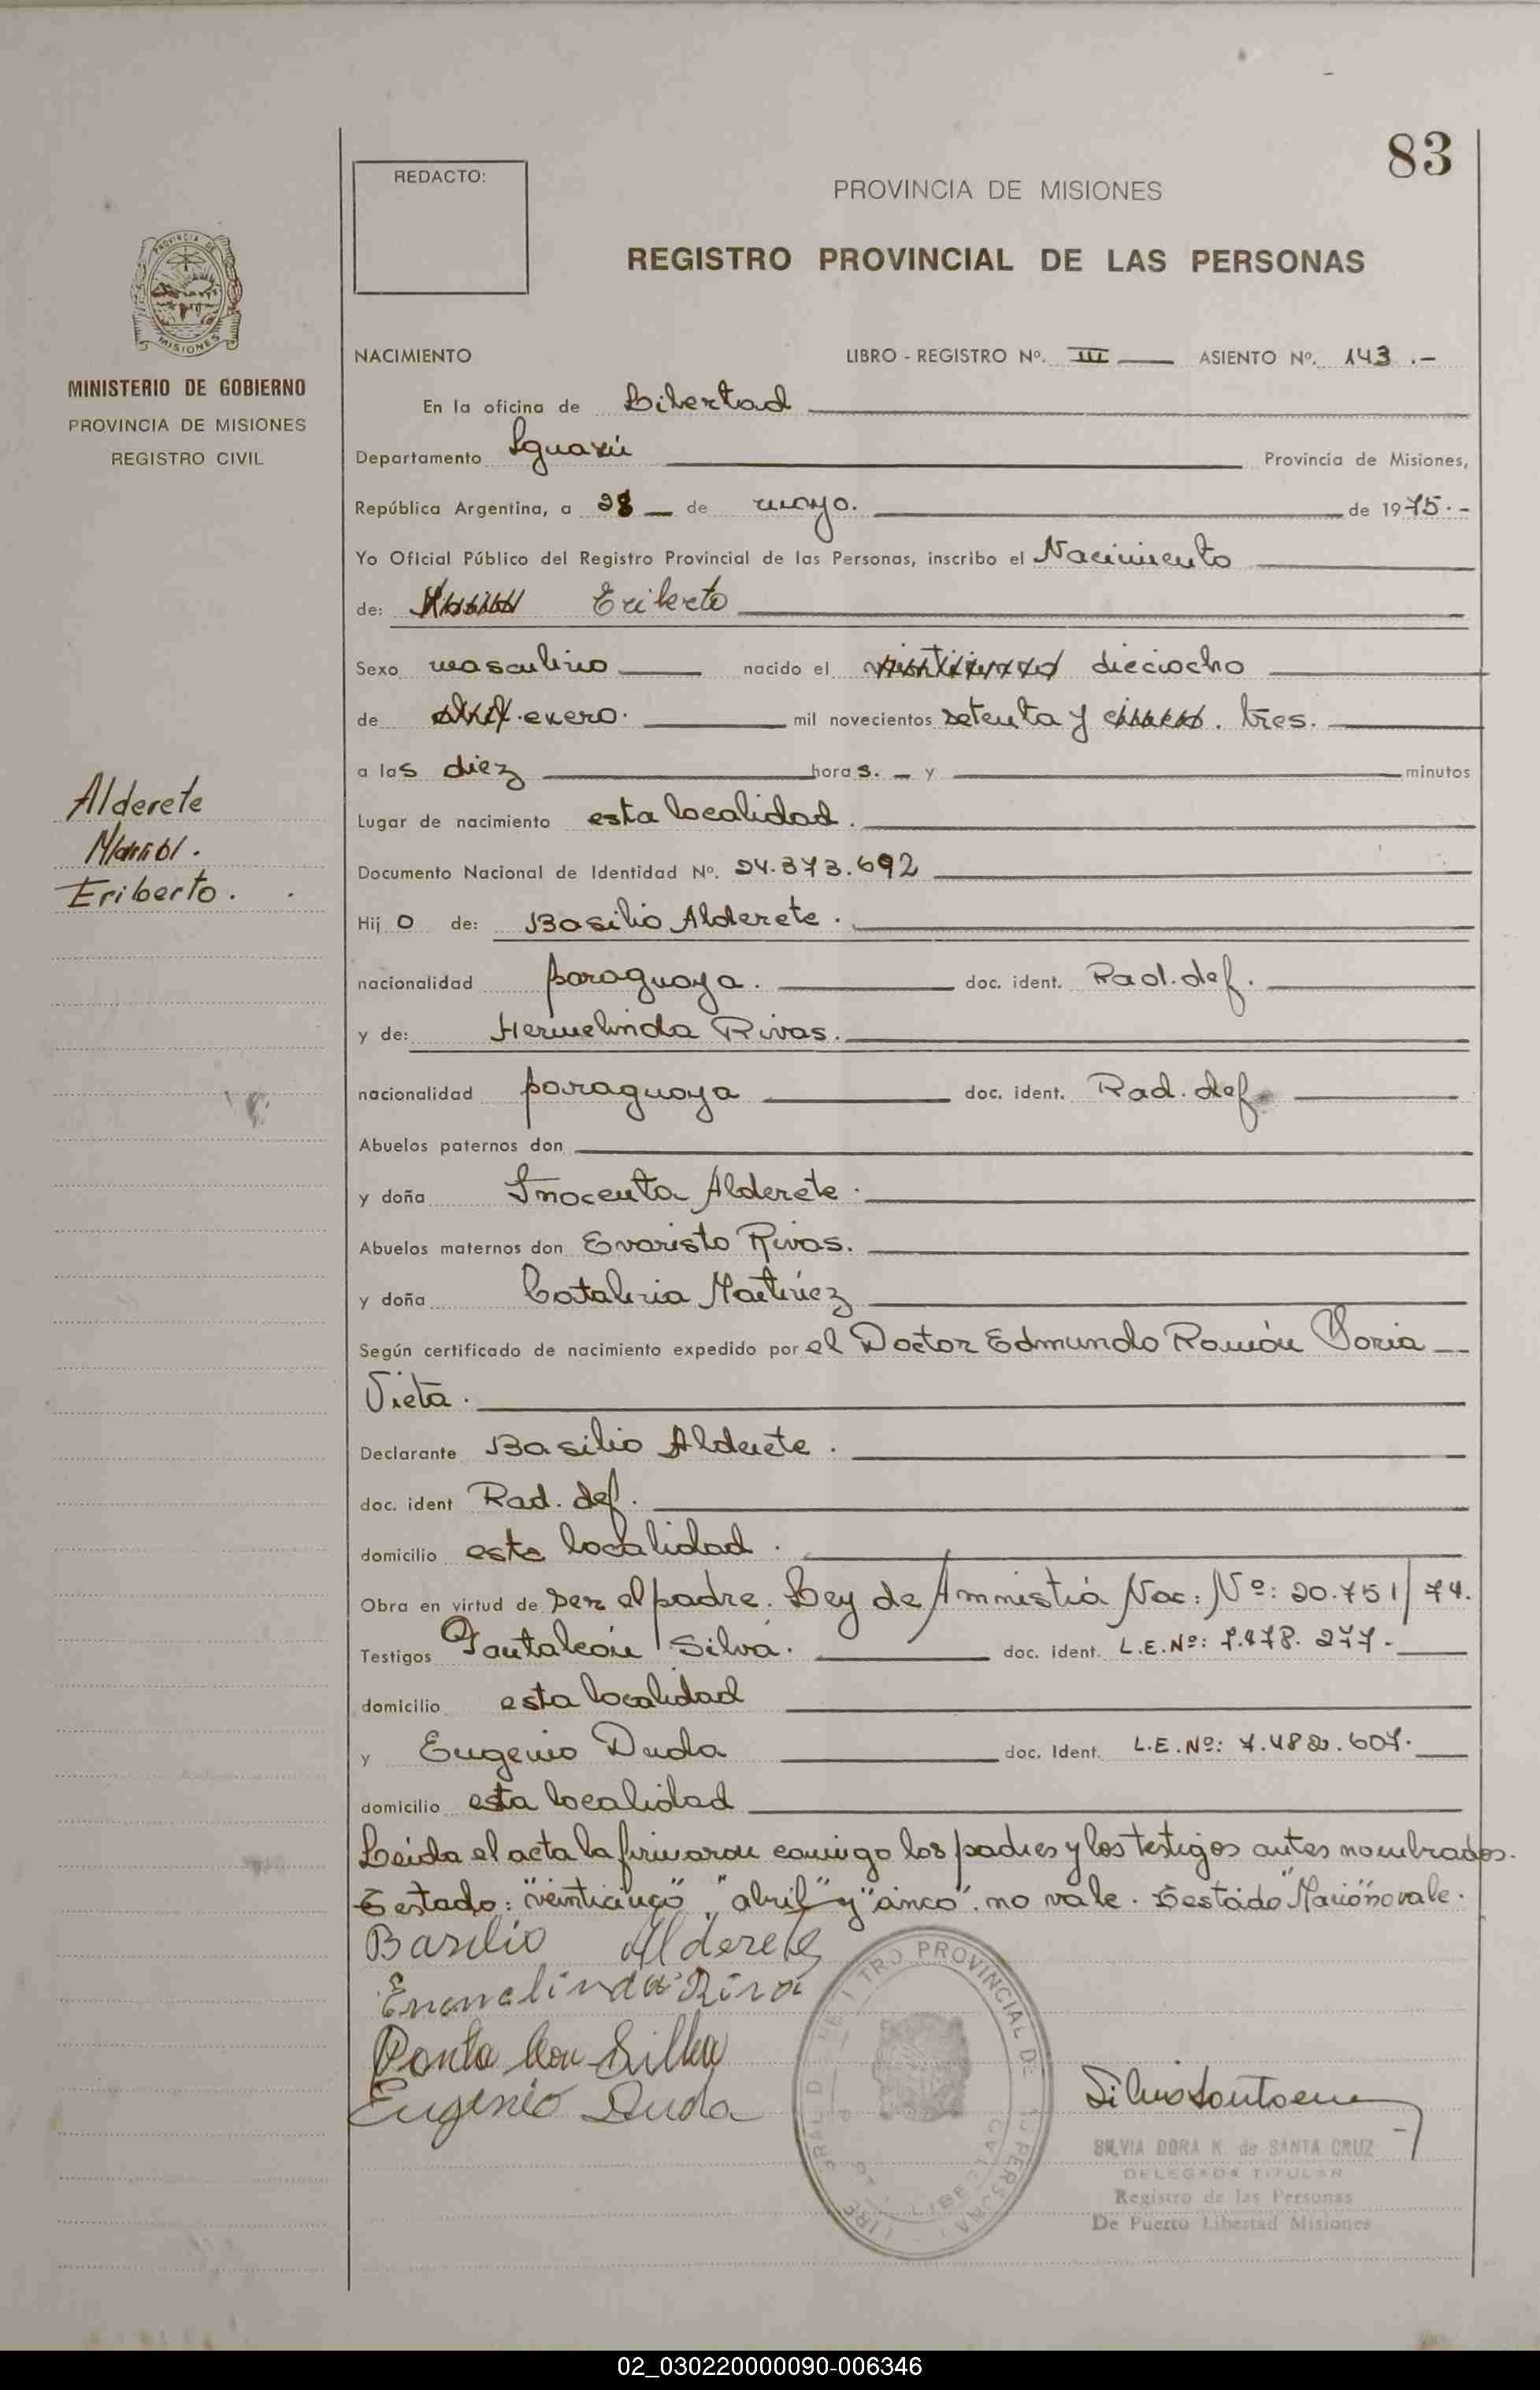 83
REDACTO:
PROVINCIA DE MISIONES
REGISTRO PROVINCIAL DE LAS PERSONAS
PROVINCIA DE
MISIONES
MINISTERIO DE GOBIERNO
PROVINCIA DE MISIONES
REGISTRO CIVIL
NACIMIENTO LIBRO - REGISTRO Nº. III ASIENTO Nº. 143.-
En la oficina de Libertad
Departamento Iguazú Provincia de Misiones,
República Argentina, a 28 de mayo. de 1975.-
Yo Oficial Público del Registro Provincial de las Personas, inscribo el Nacimiento
de: Eriberto
Sexo masculino nacido el dieciocho
de abril. enero. mil novecientos setenta y cinco. tres.
a las diez horas. y minutos
Alderete
Eriberto.
Lugar de nacimiento esta localidad.
Documento Nacional de Identidad Nº. 24.373.692
Hijo de: Basilio Alderete.
nacionalidad paraguaya. doc. ident. Rad. def.
y de: Hermelinda Rivas.
nacionalidad paraguaya doc. ident. Rad. def.
Abuelos paternos don
y doña Inocenta Alderete.
Abuelos maternos don Evaristo Rivas.
y doña Catalina Martínez
Según certificado de nacimiento expedido por el Doctor Edmundo Ramón Soria
Vieta.
Declarante Basilio Alderete.
doc. ident Rad. def.
domicilio esta localidad.
Obra en virtud de ser el padre. Ley de Amnistía Nac: Nº: 20.751/74.
Testigos Pantaleón Silva. doc. ident. L.E.Nº: 7.478.277.-
domicilio esta localidad
y Eugenio Duda doc. Ident. L.E.Nº: 7.482.607.
domicilio esta localidad
Leída el acta la firmaron conmigo los padres y los testigos antes nombrados.
Testado: "veinticinco", "abril" y "cinco". no vale. Testado no vale.
Basilio Alderete
Ermelinda Riva
Eugenio Duda
SILVIA DORA K. de SANTA CRUZ
DELEGADA TITULAR
Registro de las Personas
De Puerto Libertad Misiones
02_030220000090-006346